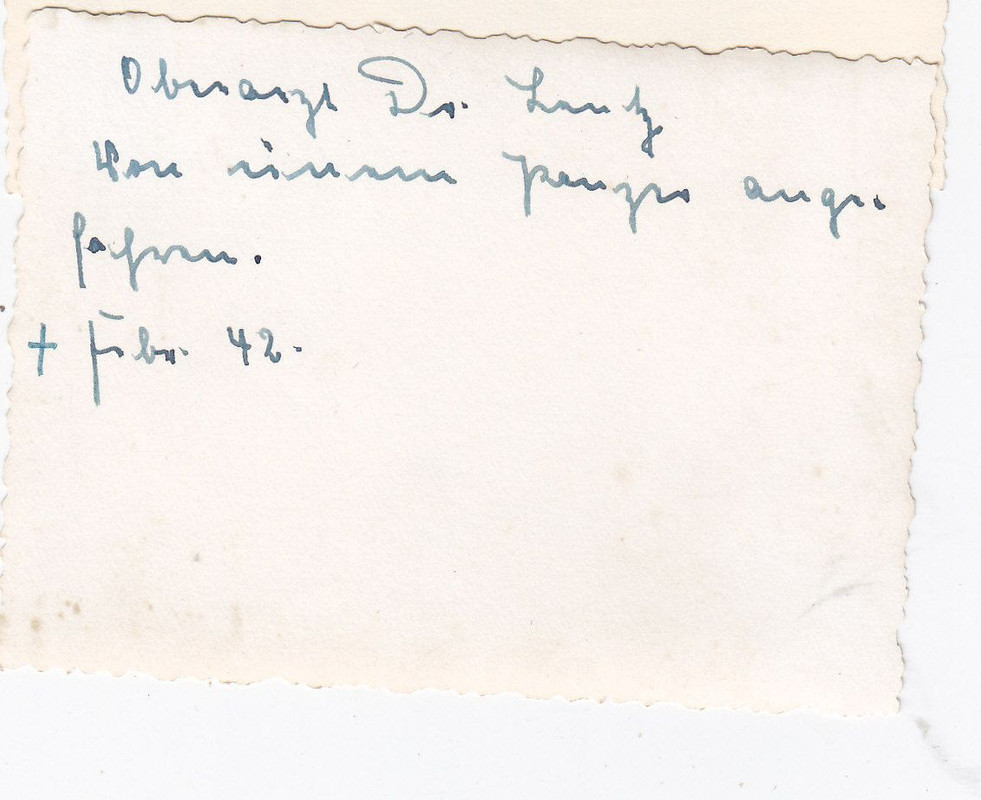 Oberarzt Dr. Lentz
Von einem Panzer ange
fahren.
† Febr. 42.